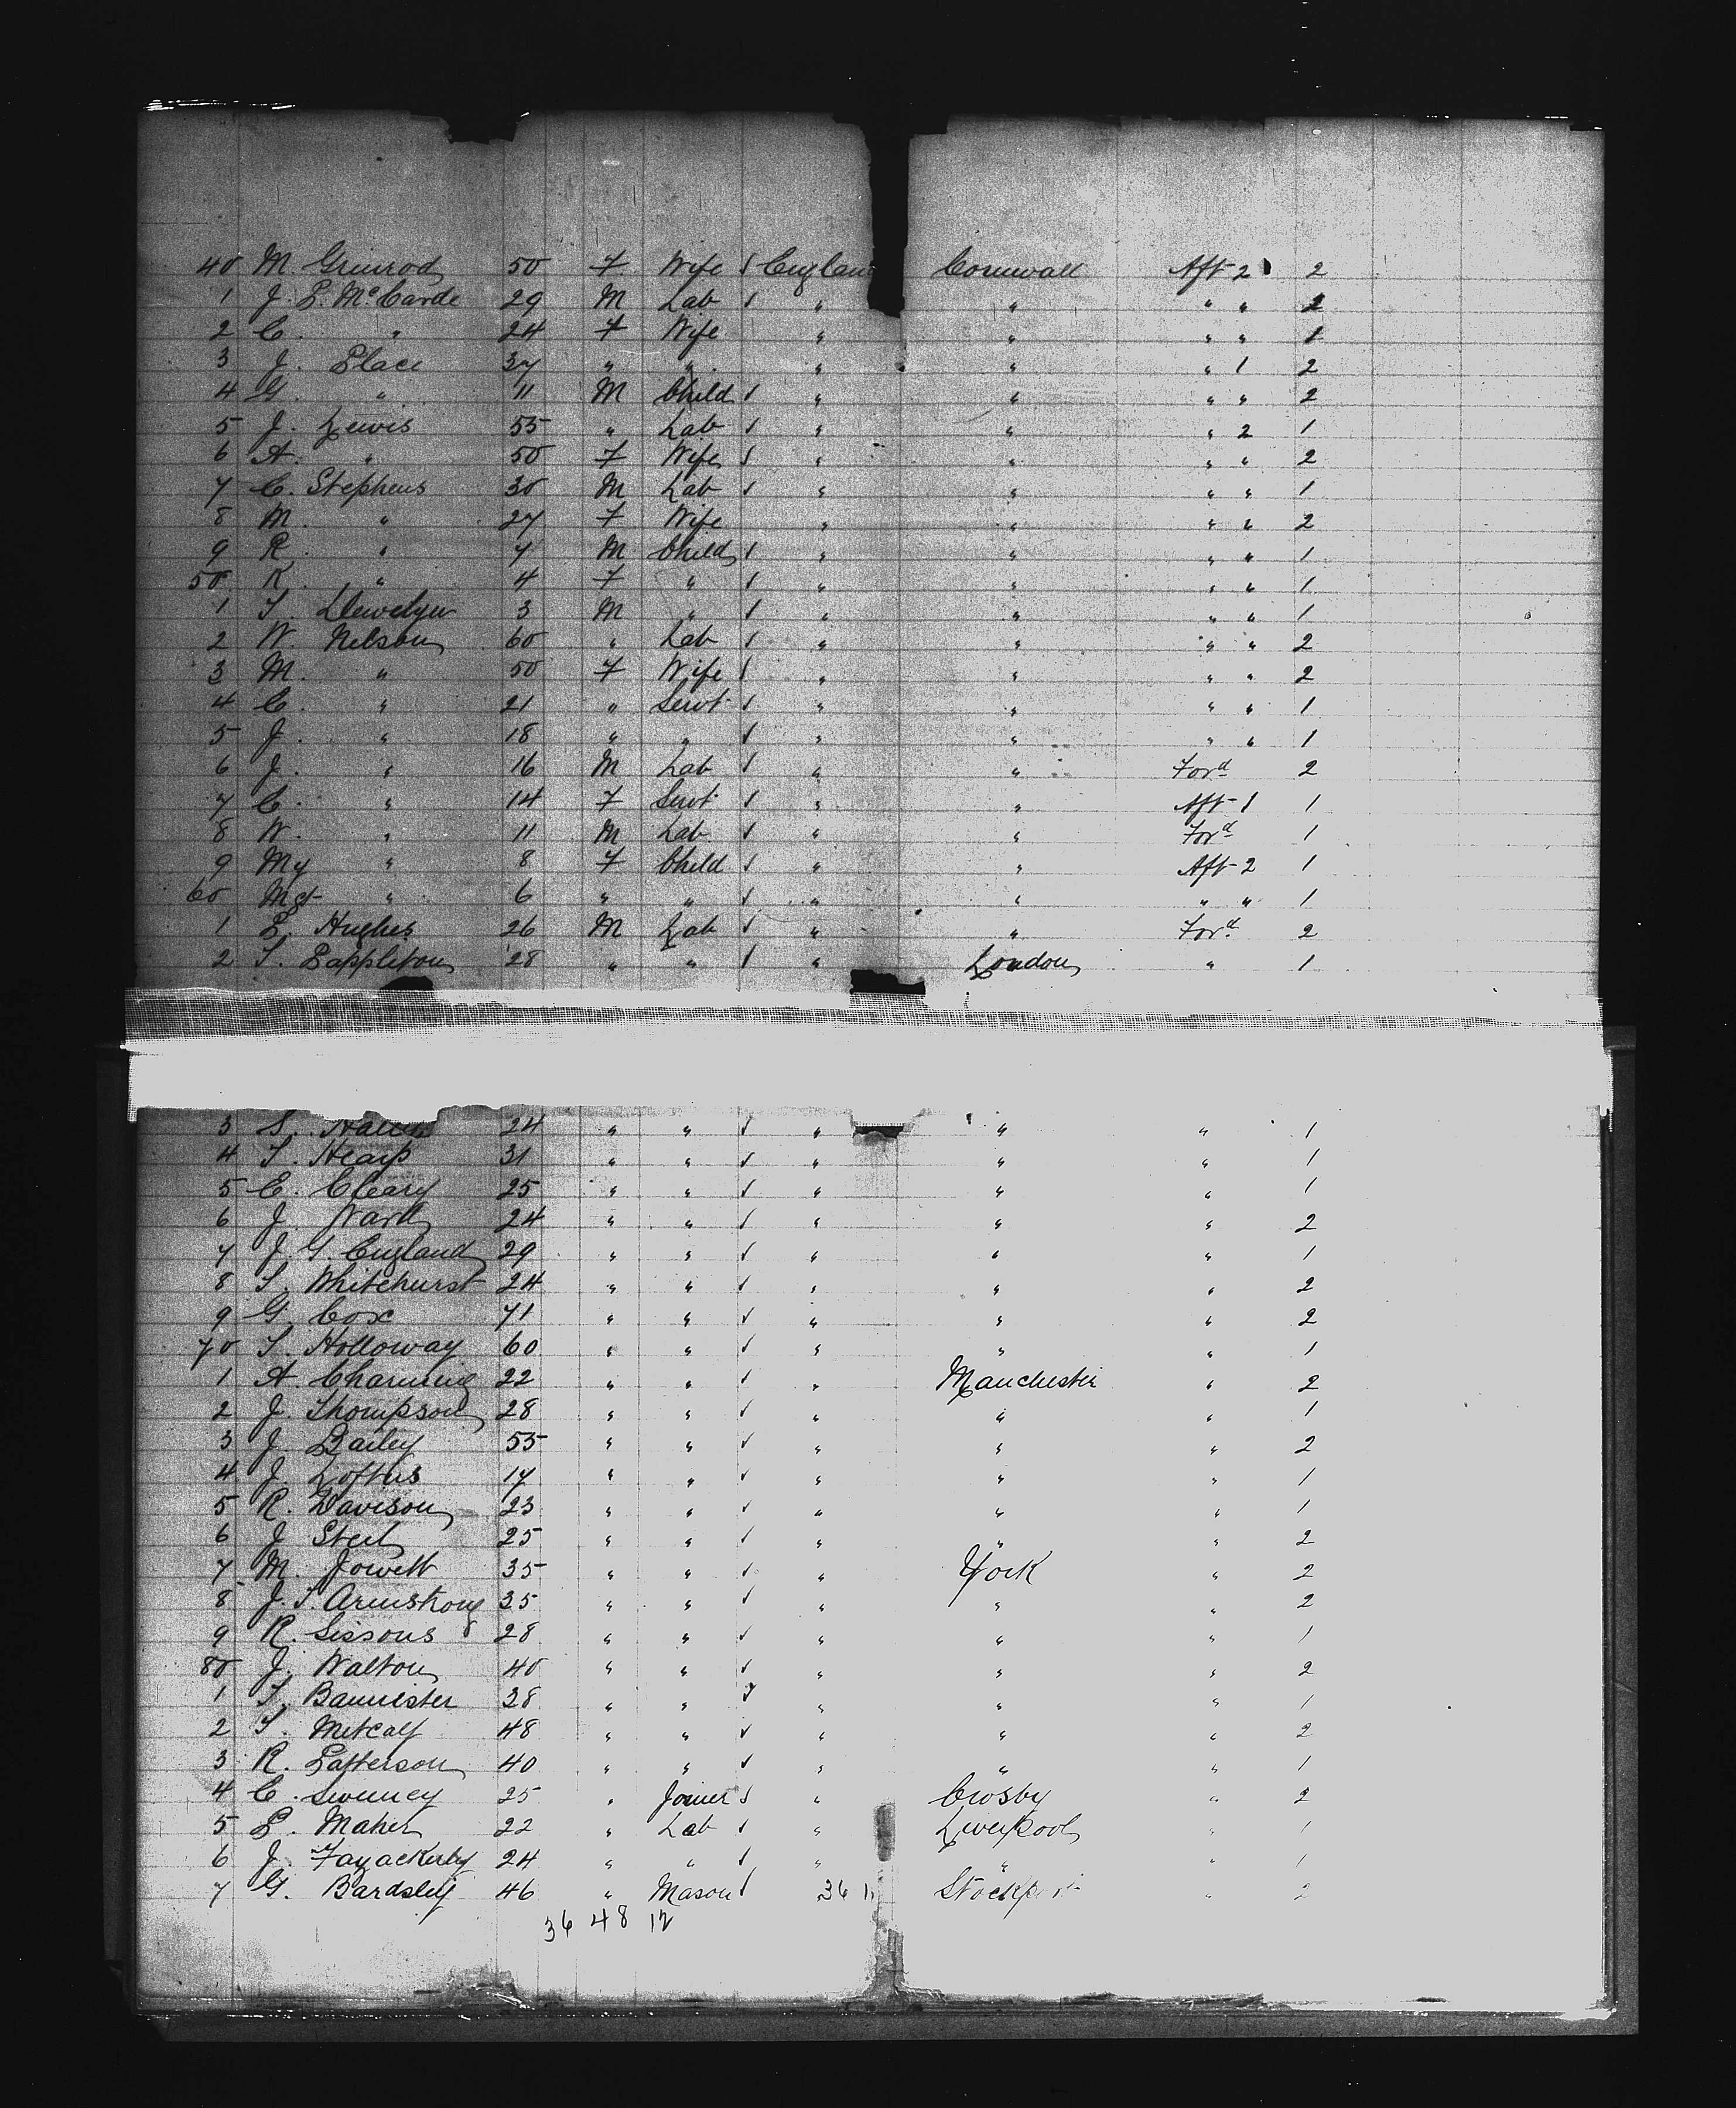 40 M. Grimrod 50 F Wife England Cornwall Aft 2 2
1 J. P. McCarde 29 M Lab " " " " 2
2 C. " 24 F Wife " " " " 1
3 J. Place 37 " " " " " 1 2
4 G. " 11 M Child " " " " 2
5 J. Lewis 55 " Lab " " " 2 1
6 A. " 50 F Wife " " " " 2
7 C. Stephens 30 M Lab " " " " 1
8 M. " 27 F Wife " " " " 2
9 R. " 7 M Child " " " " 1
50 K. " 4 F " " " " " 1
1 T. Llewelyn 3 M " " " " " 1
2 W. Nelson 60 " Lab " " " " 2
3 M. " 50 F Wife " " " " 2
4 C. " 21 " Servt " " " " 1
5 J. " 18 " " " " " " 1
6 J. " 16 M Lab " " Ford 2
7 C. " 14 F Servt " " Aft 1 1
8 W. " 11 M Lab " " Ford 1
9 My " 8 F Child " " Aft 2 1
60 Mgt " 6 " " " " " " 1
1 P. Hughes 26 M Lab " " Ford 2
2 T. Pappliton 28 " " " London " 1
3 S. 24 " " " " " 1
4 T. Heap 31 " " " " " 1
5 C. Cleary 25 " " " " " 1
6 J. Ward 24 " " " " " 2
7 J. G. England 29 " " " " " 1
8 T. Whitehurst 24 " " " " " 2
9 G. Cox 71 " " " " " 2
70 T. Holloway 60 " " " " " 1
1 A. Charning 22 " " " Manchester " 2
2 J. Thompson 28 " " " " " 1
3 J. Bailey 55 " " " " " 2
4 J. Loftus 17 " " " " " 1
5 R. Davison 23 " " " " " 1
6 J. Steel 25 " " " " " 2
7 M. Jowett 35 " " " York " 2
8 J. T. Armstrong 35 " " " " " 2
9 R. Sissons 28 " " " " " 1
80 J. Walton 40 " " " " " 2
1 T. Bannister 38 " " " " " 1
2 T. Metcalf 48 " " " " " 2
3 R. Patterson 40 " " " " " 1
4 C. Sweeney 25 " Joiner " Crosby " 2
5 P. Maher 22 " Lab " Liverpool " 1
6 J. Fazackerley 24 " " " " " 1
7 G. Bardsley 46 " Mason 36 1 Stockport " 2
36 48 12